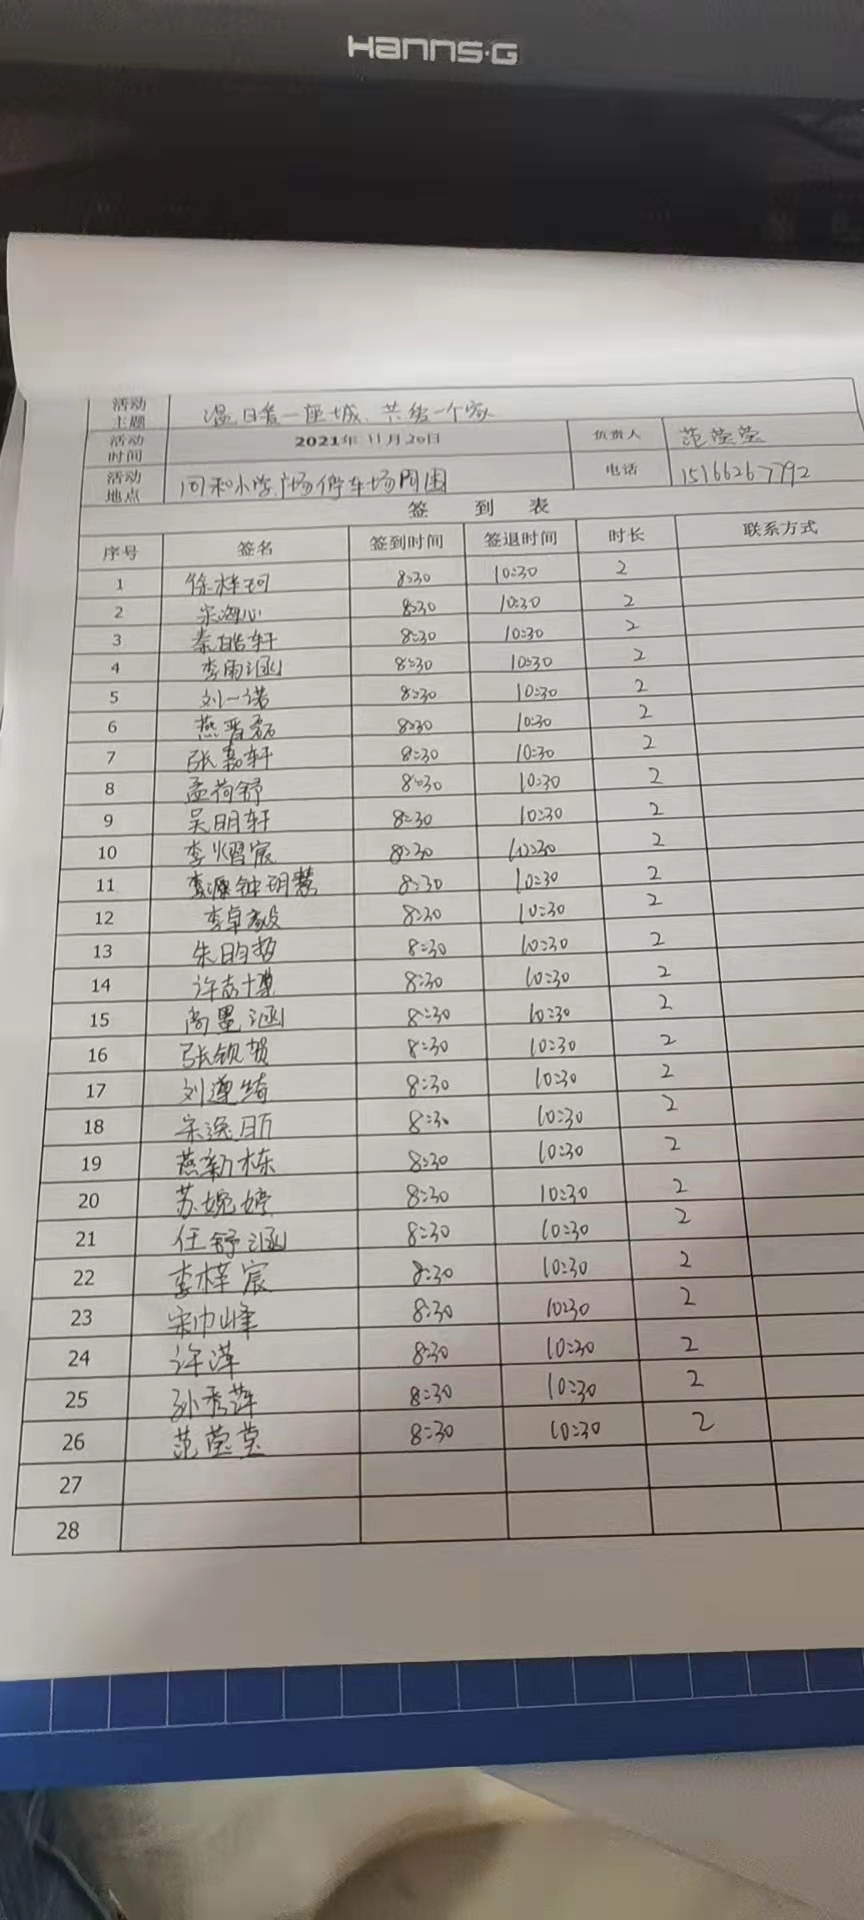 HANNS·G
活动主题 温暖一座城,共给一个家
活动时间 2021年11月20日 负责人 范莹莹
活动地点 问和小学广场停车场周围 电话 15166267792
签到表
序号 签名 签到时间 签退时间 时长 联系方式
1 徐梓珂 8:30 10:30 2
2 宋海心 8:30 10:30 2
3 秦皓轩 8:30 10:30 2
4 李雨涵 8:30 10:30 2
5 刘一诺 8:30 10:30 2
6 燕晋磊 8:30 10:30 2
7 张嘉轩 8:30 10:30 2
8 孟荷舒 8:30 10:30 2
9 吴明轩 8:30 10:30 2
10 李熠宸 8:30 10:30 2
11 李源 钟玥慧 8:30 10:30 2
12 李卓毅 8:30 10:30 2
13 朱昀哲 8:30 10:30 2
14 许志博 8:30 10:30 2
15 尚墨涵 8:30 10:30 2
16 张钦贺 8:30 10:30 2
17 刘遵绮 8:30 10:30 2
18 宋逸 8:30 10:30 2
19 燕新栋 8:30 10:30 2
20 苏婉婷 8:30 10:30 2
21 任舒涵 8:30 10:30 2
22 李梓宸 8:30 10:30 2
23 宋巾峰 8:30 10:30 2
24 许泽 8:30 10:30 2
25 孙秀萍 8:30 10:30 2
26 范莹莹 8:30 10:30 2
27
28